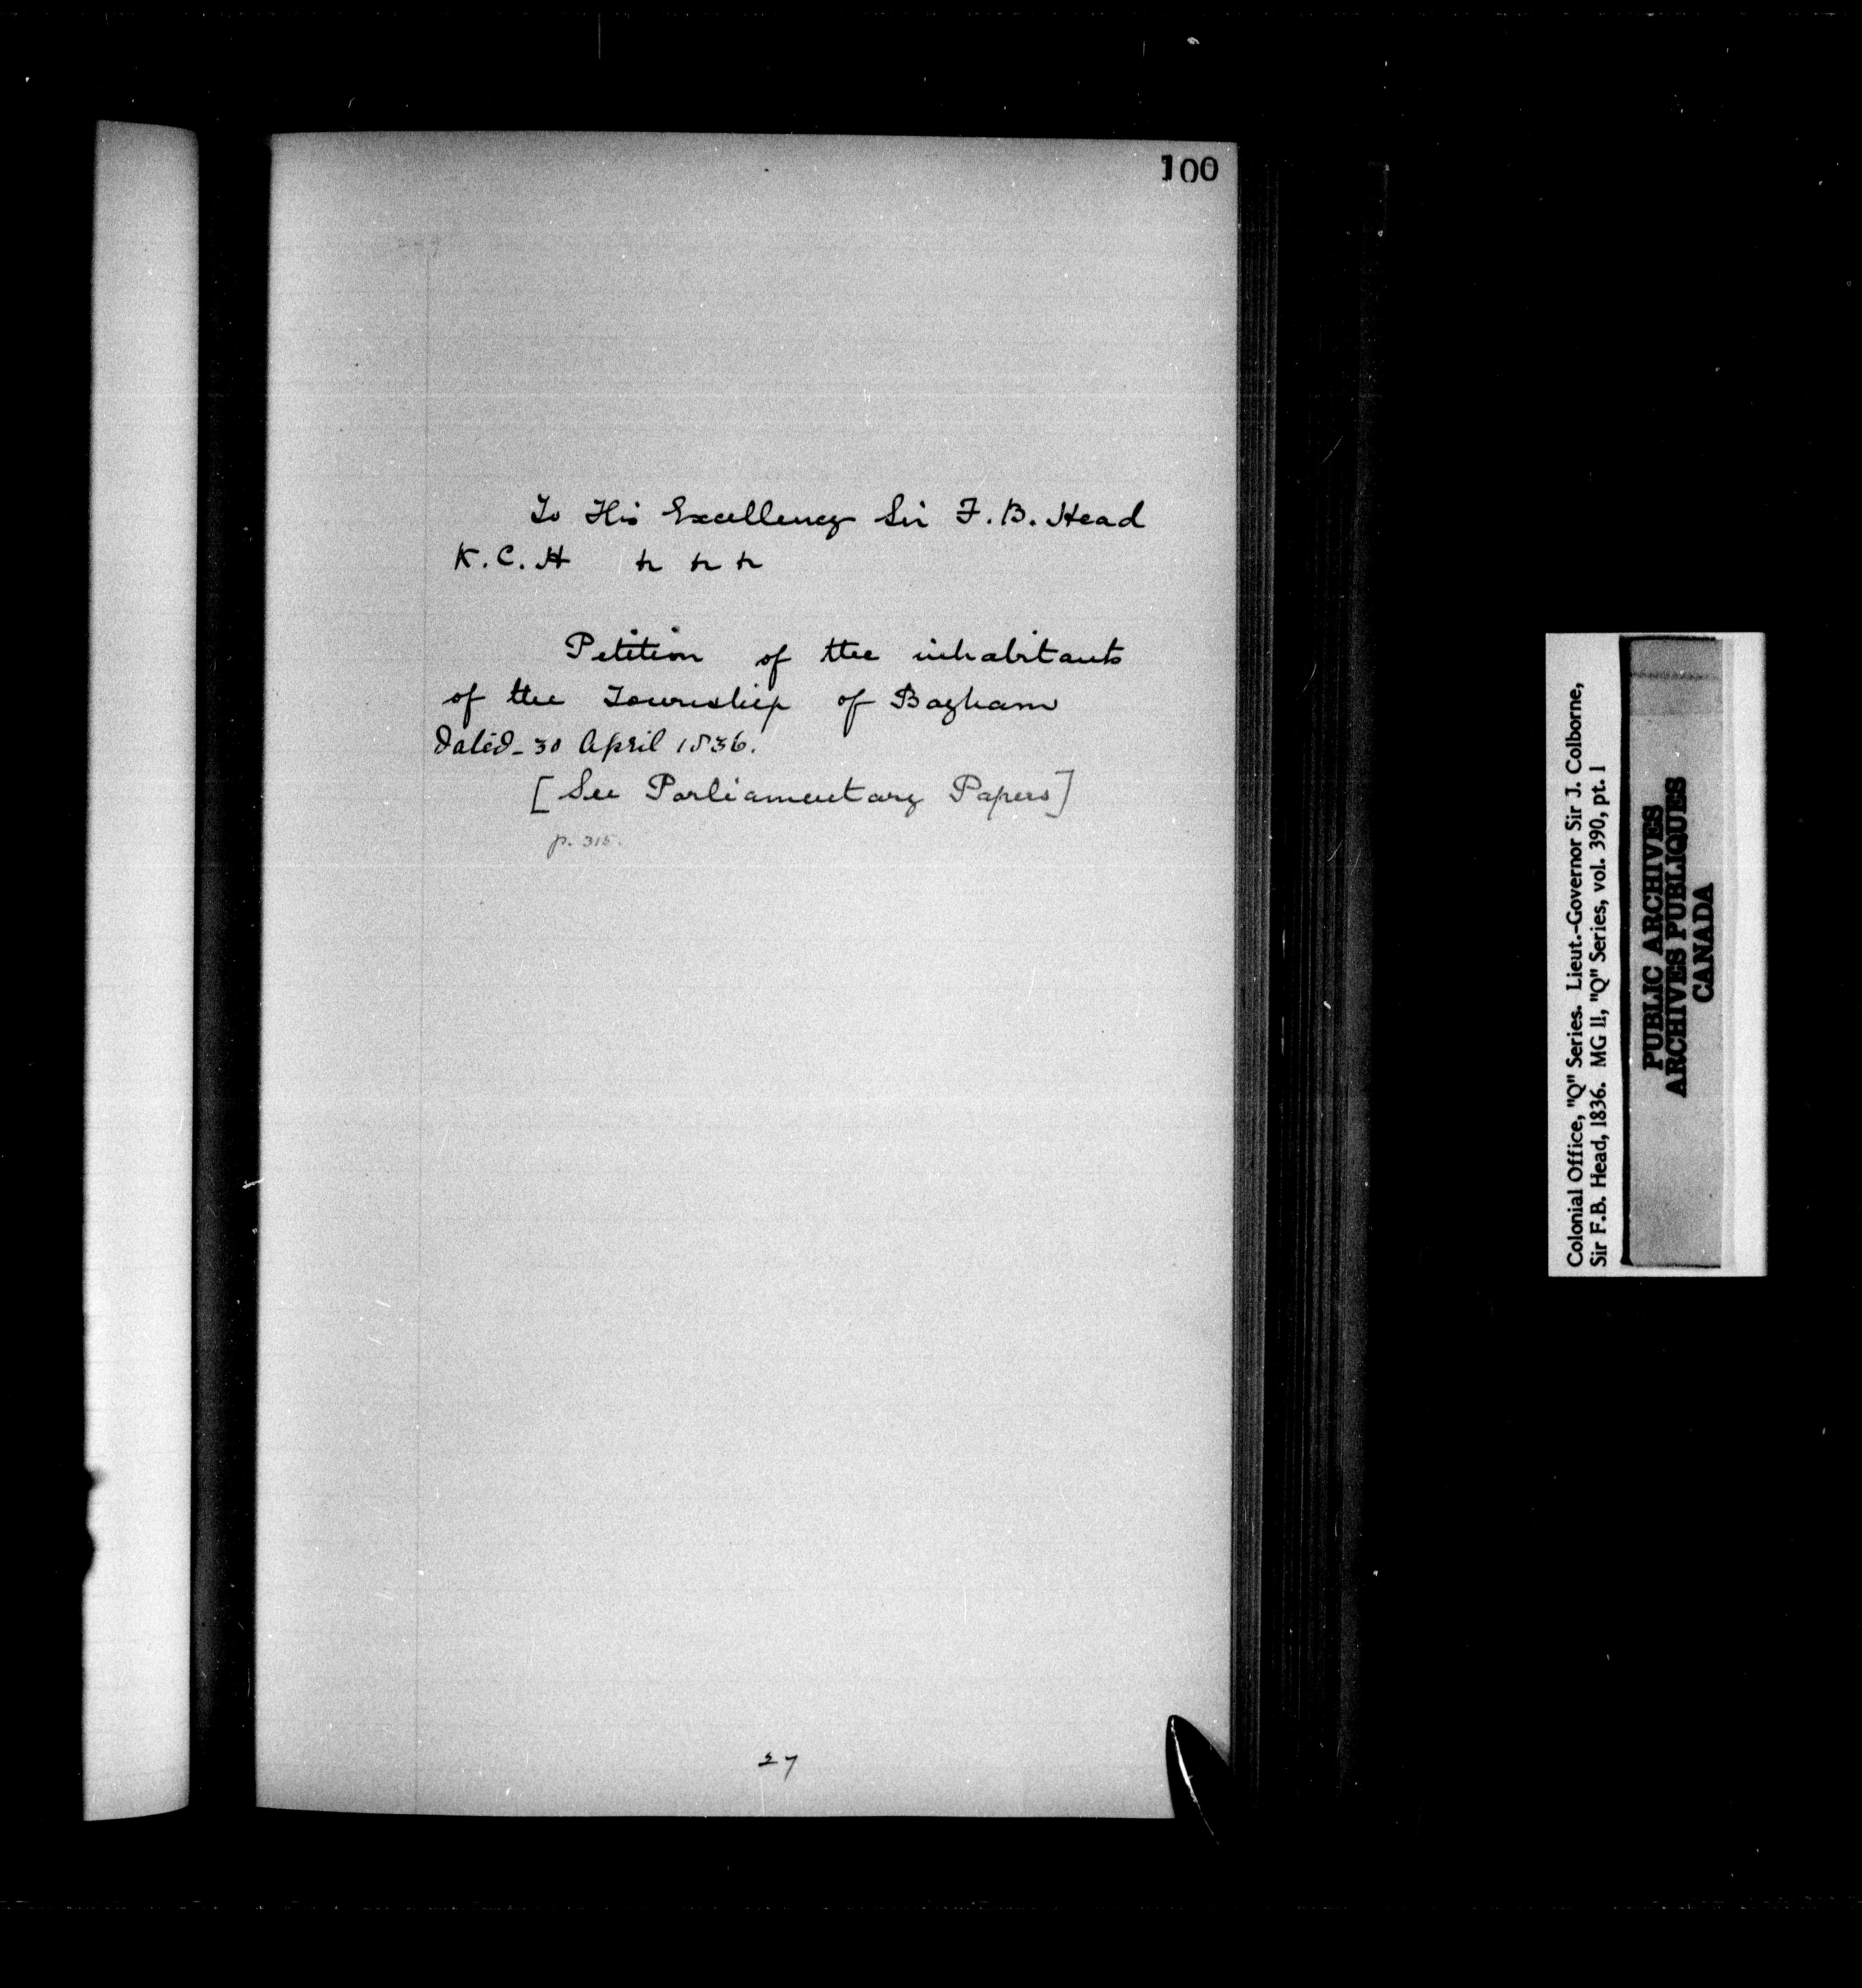 100
To His Excellency Sir F. B. Head
K. C. H &c &c &c
Petition of the inhabitants
of the Township of Bayham
dated - 30 April 1836.
[See Parliamentary Papers]
p. 315.
27
Colonial Office, "Q" Series. Lieut.-Governor Sir J. Colborne,
Sir F.B. Head, 1836. MG 11, "Q" Series, vol. 390, pt. 1
PUBLIC ARCHIVES
ARCHIVES PUBLIQUES
CANADA